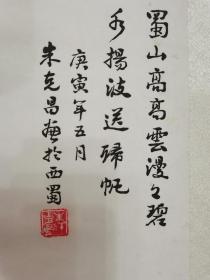 蜀山高高雲漫漫碧
水揚波送歸帆
庚寅年五月
朱克昌畫於西蜀